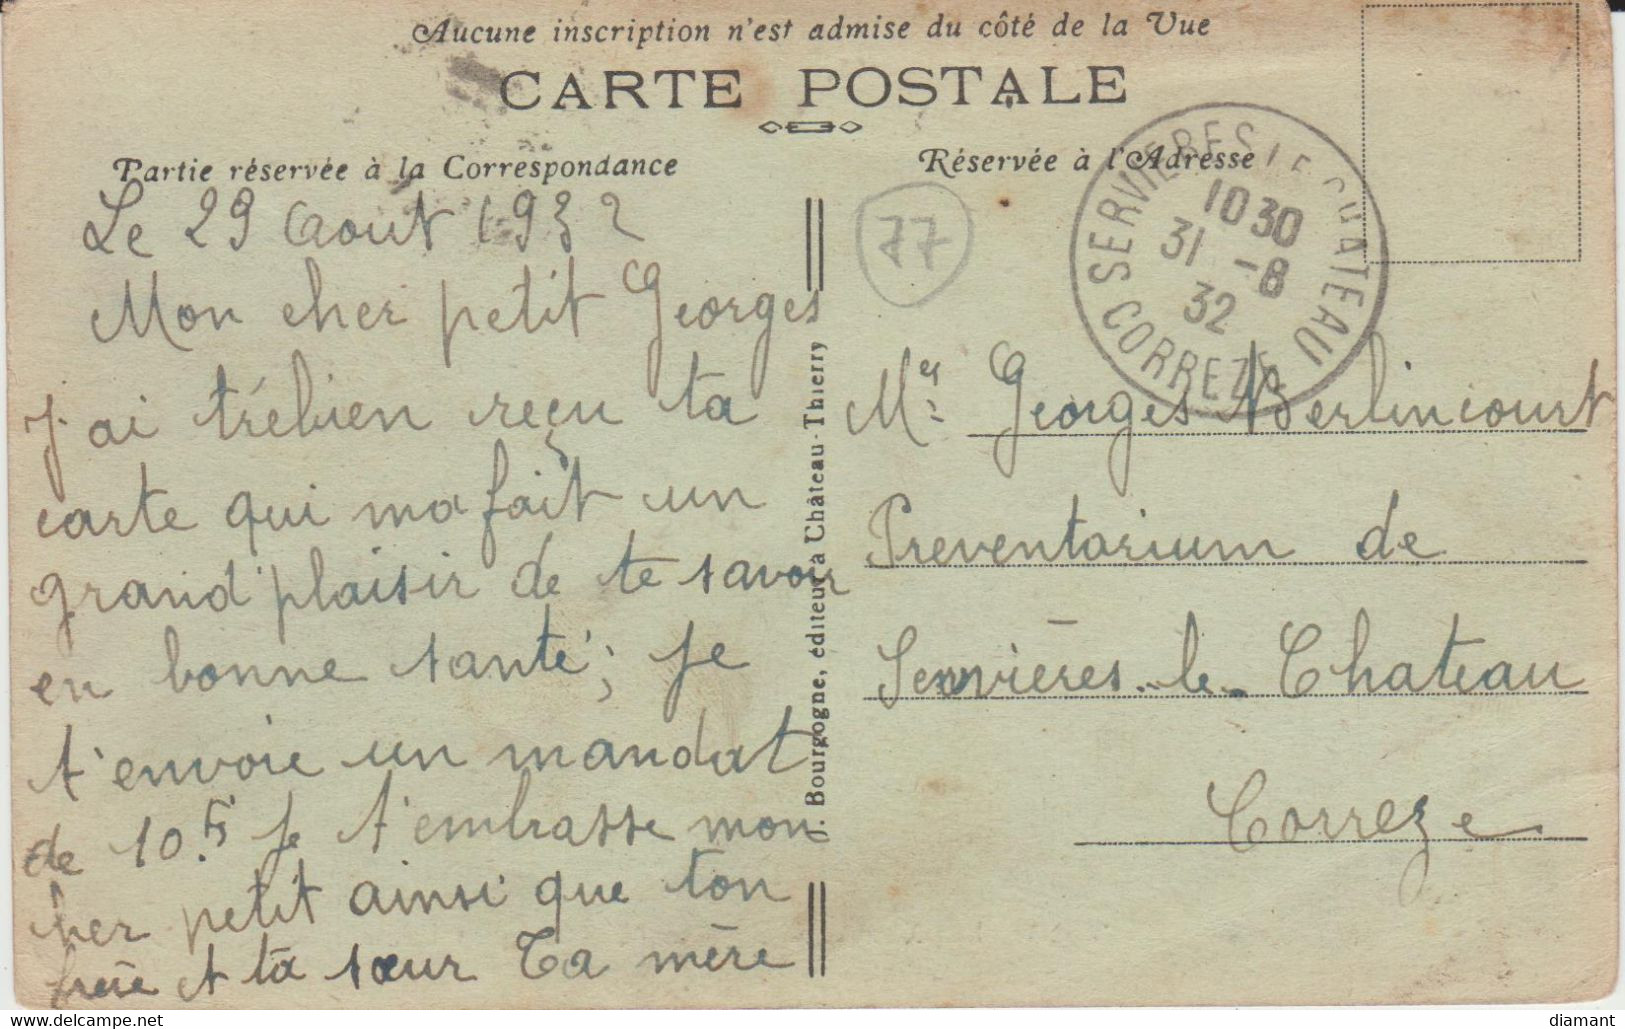 Aucune inscription n'est admise du côté de la Vue
CARTE POSTALE
Partie réservée à la Correspondance
Le 29 Aout 1932
Mon cher petit Georges
J'ai trèbien reçu ta
carte qui ma fait un
grand plaisir de te savoir
en bonne santé; je
t'envoie un mandat
de 10.Fs je t'embrasse mon
cher petit ainsi que ton
frère et ta sœur Ta mère
J. Bourgogne, éditeur à Château-Thierry
Réservée à l'Adresse
77
SERVIERES LE CHATEAU
1030
31 -8
32
CORREZE
Mr Georges Berlincourt
Preventarium de
Servières-le-Chateau
Correze
diamant